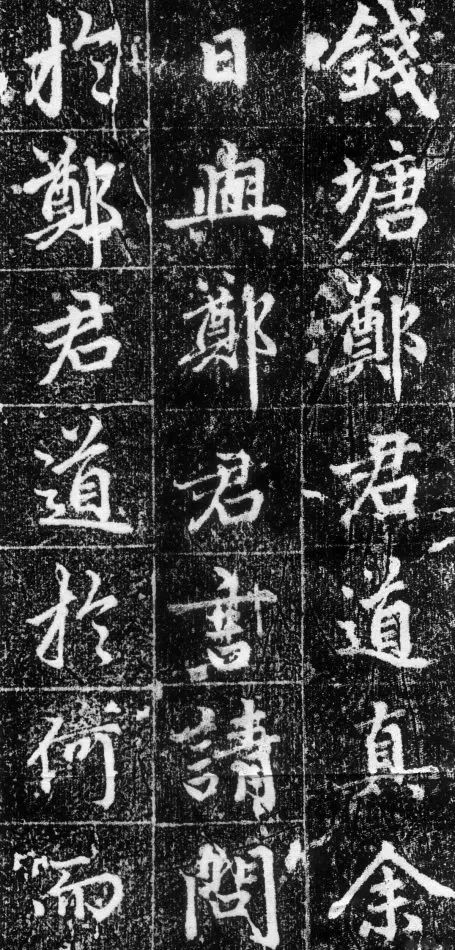 錢塘鄭君道真余
日與鄭君書請問
於鄭君道於何而